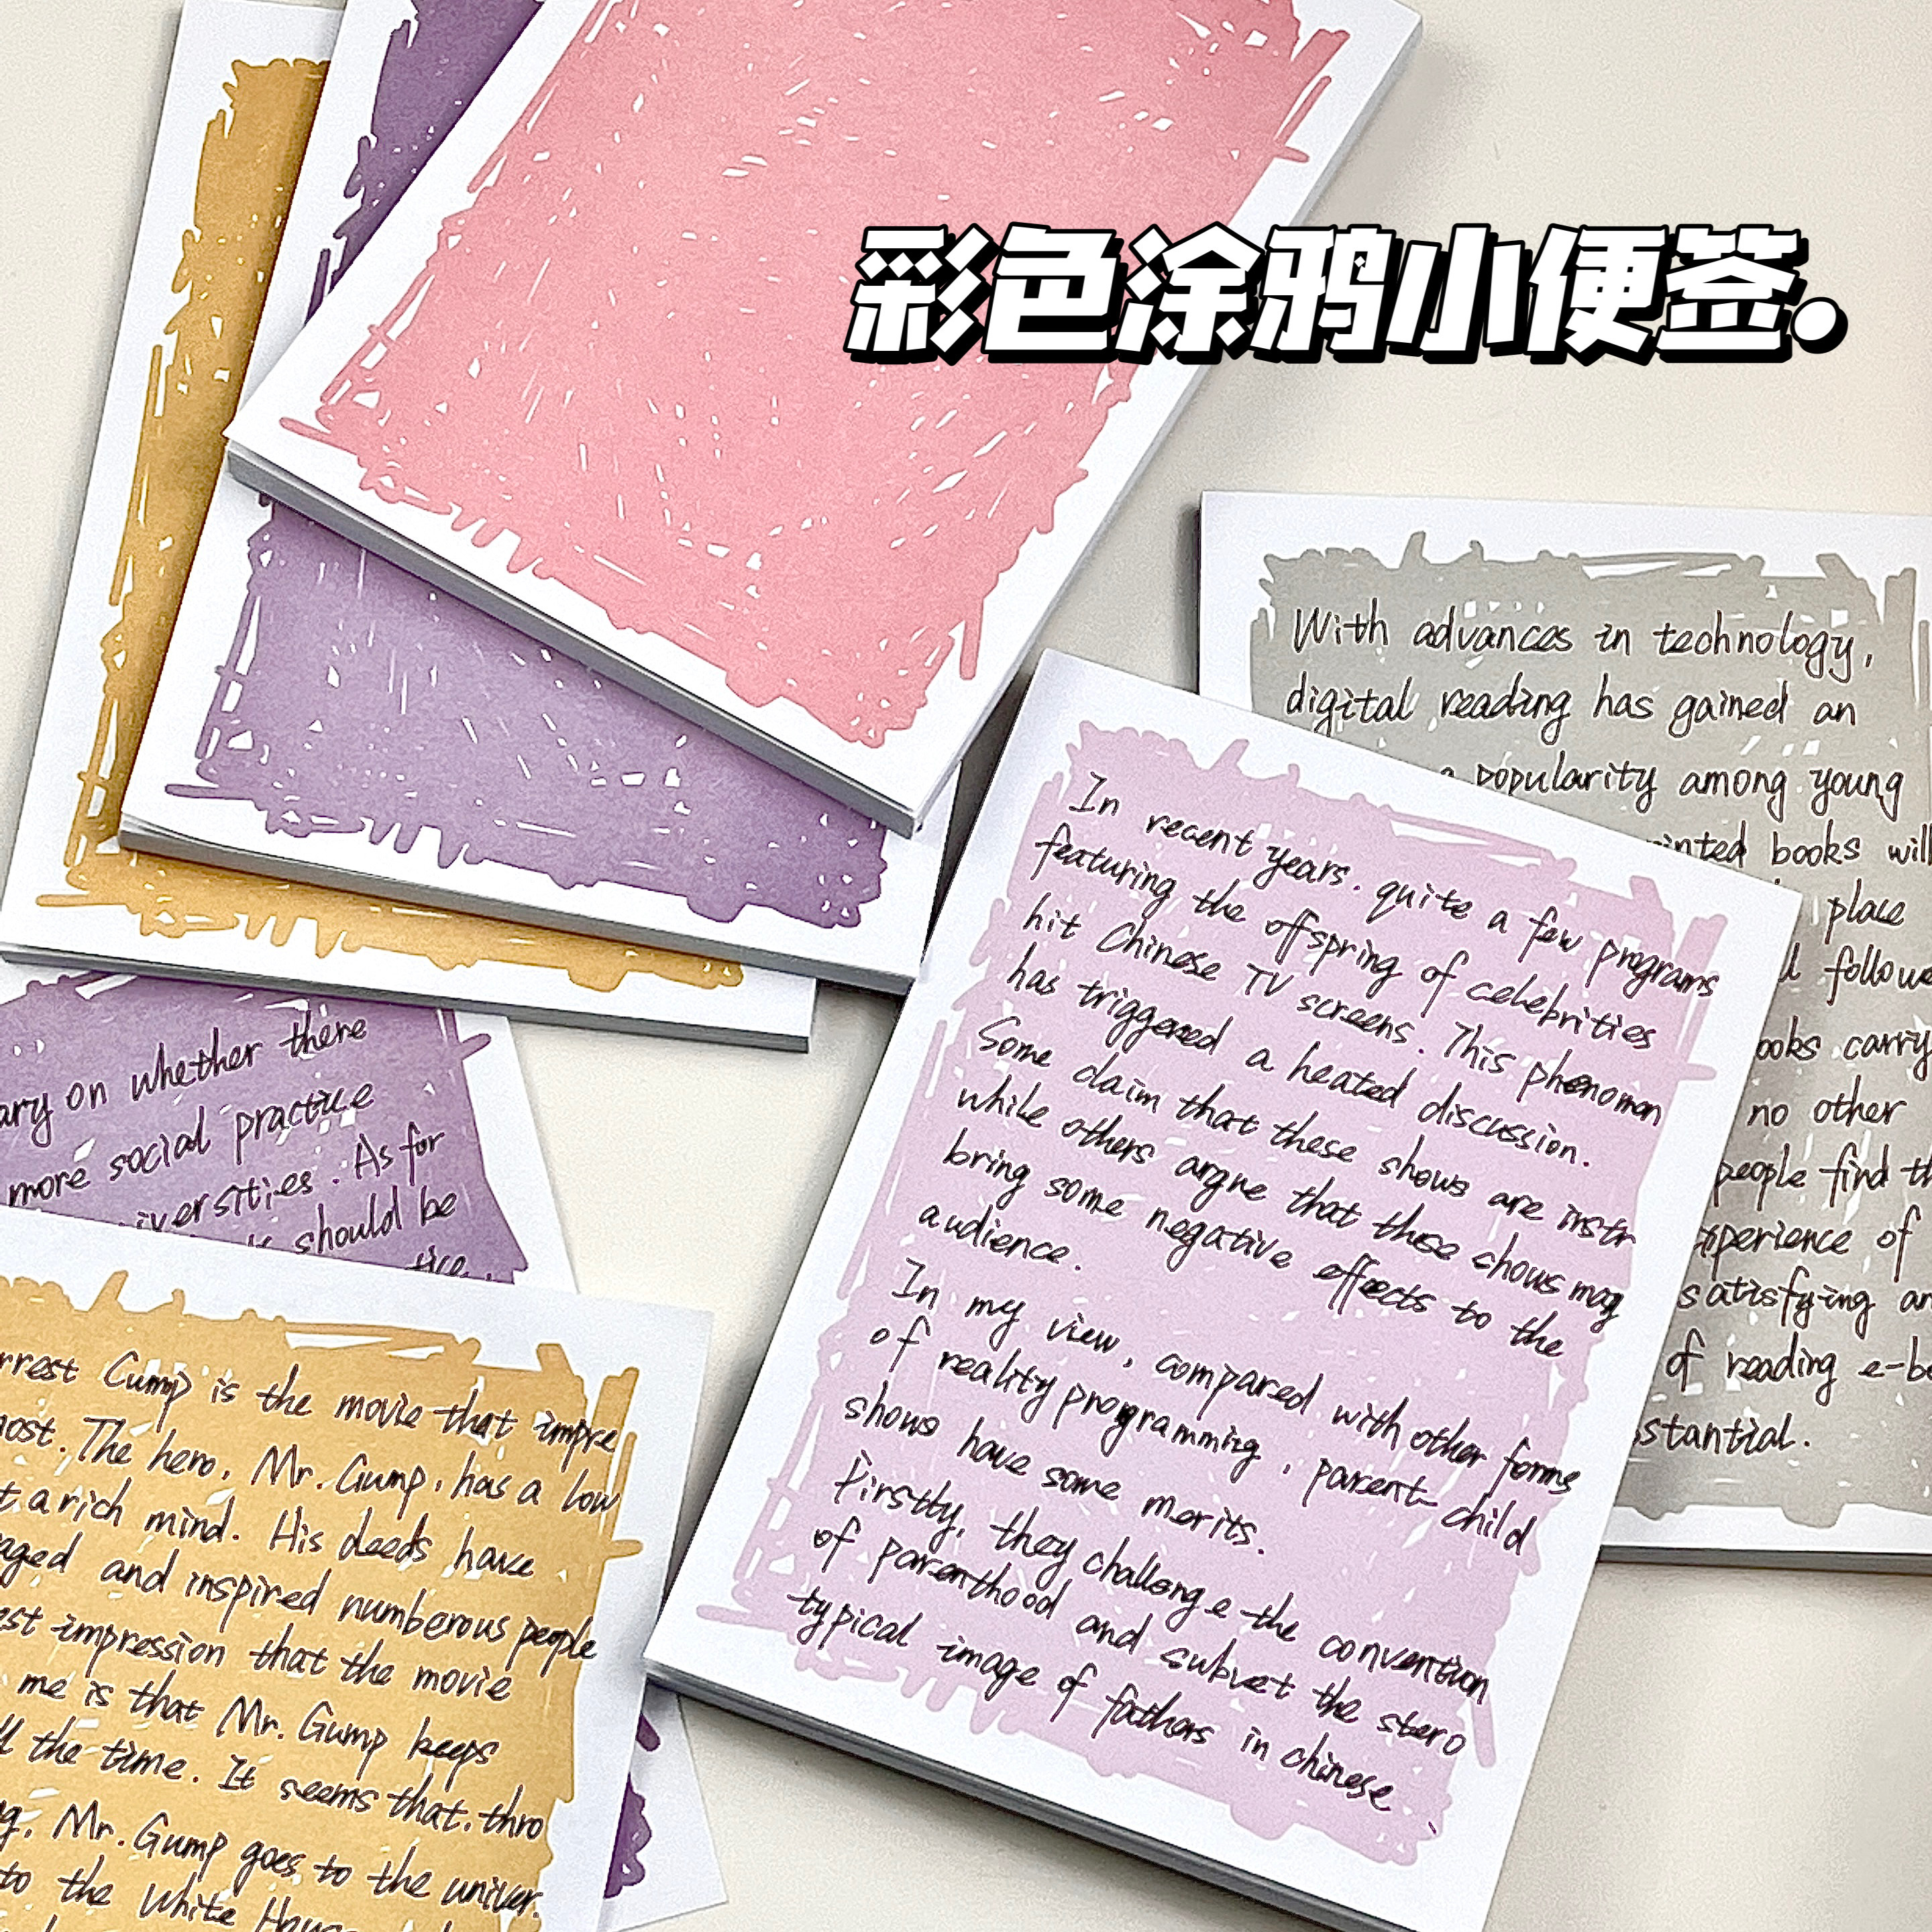 彩色涂鸦小便签.
With advances in technology,
digital reading has gained an
popularity among young
printed books will
place
followe
books carry
no other
people find th
experience of
satisfying an
of reading e-bo
stantial.
In recent years. quite a few programs
featuring the offspring of celebrities
hit Chinese TV screens. This phenomen
has triggered a heated discussion.
Some claim that these shows are instr
while others argne that those shows may
bring some negative effects to the
audience.
In my view, compared with other forms
of reality programming, parent-child
shows have some merits.
Firstly, they challenge the convention
of parenthood and subvet the stero
typical image of fathers in chinese
ary on whether there
more social practice
iversities. As for
should be
tice.
rrest Gump is the movie that impre
most. The hero, Mr. Gump, has a low
t a rich mind. His deeds have
aged and inspired numberous people
est impression that the movie
me is that Mr. Gump keeps
ll the time. It seems that, thro
ng, Mr. Gump goes to the univer.
to the White House